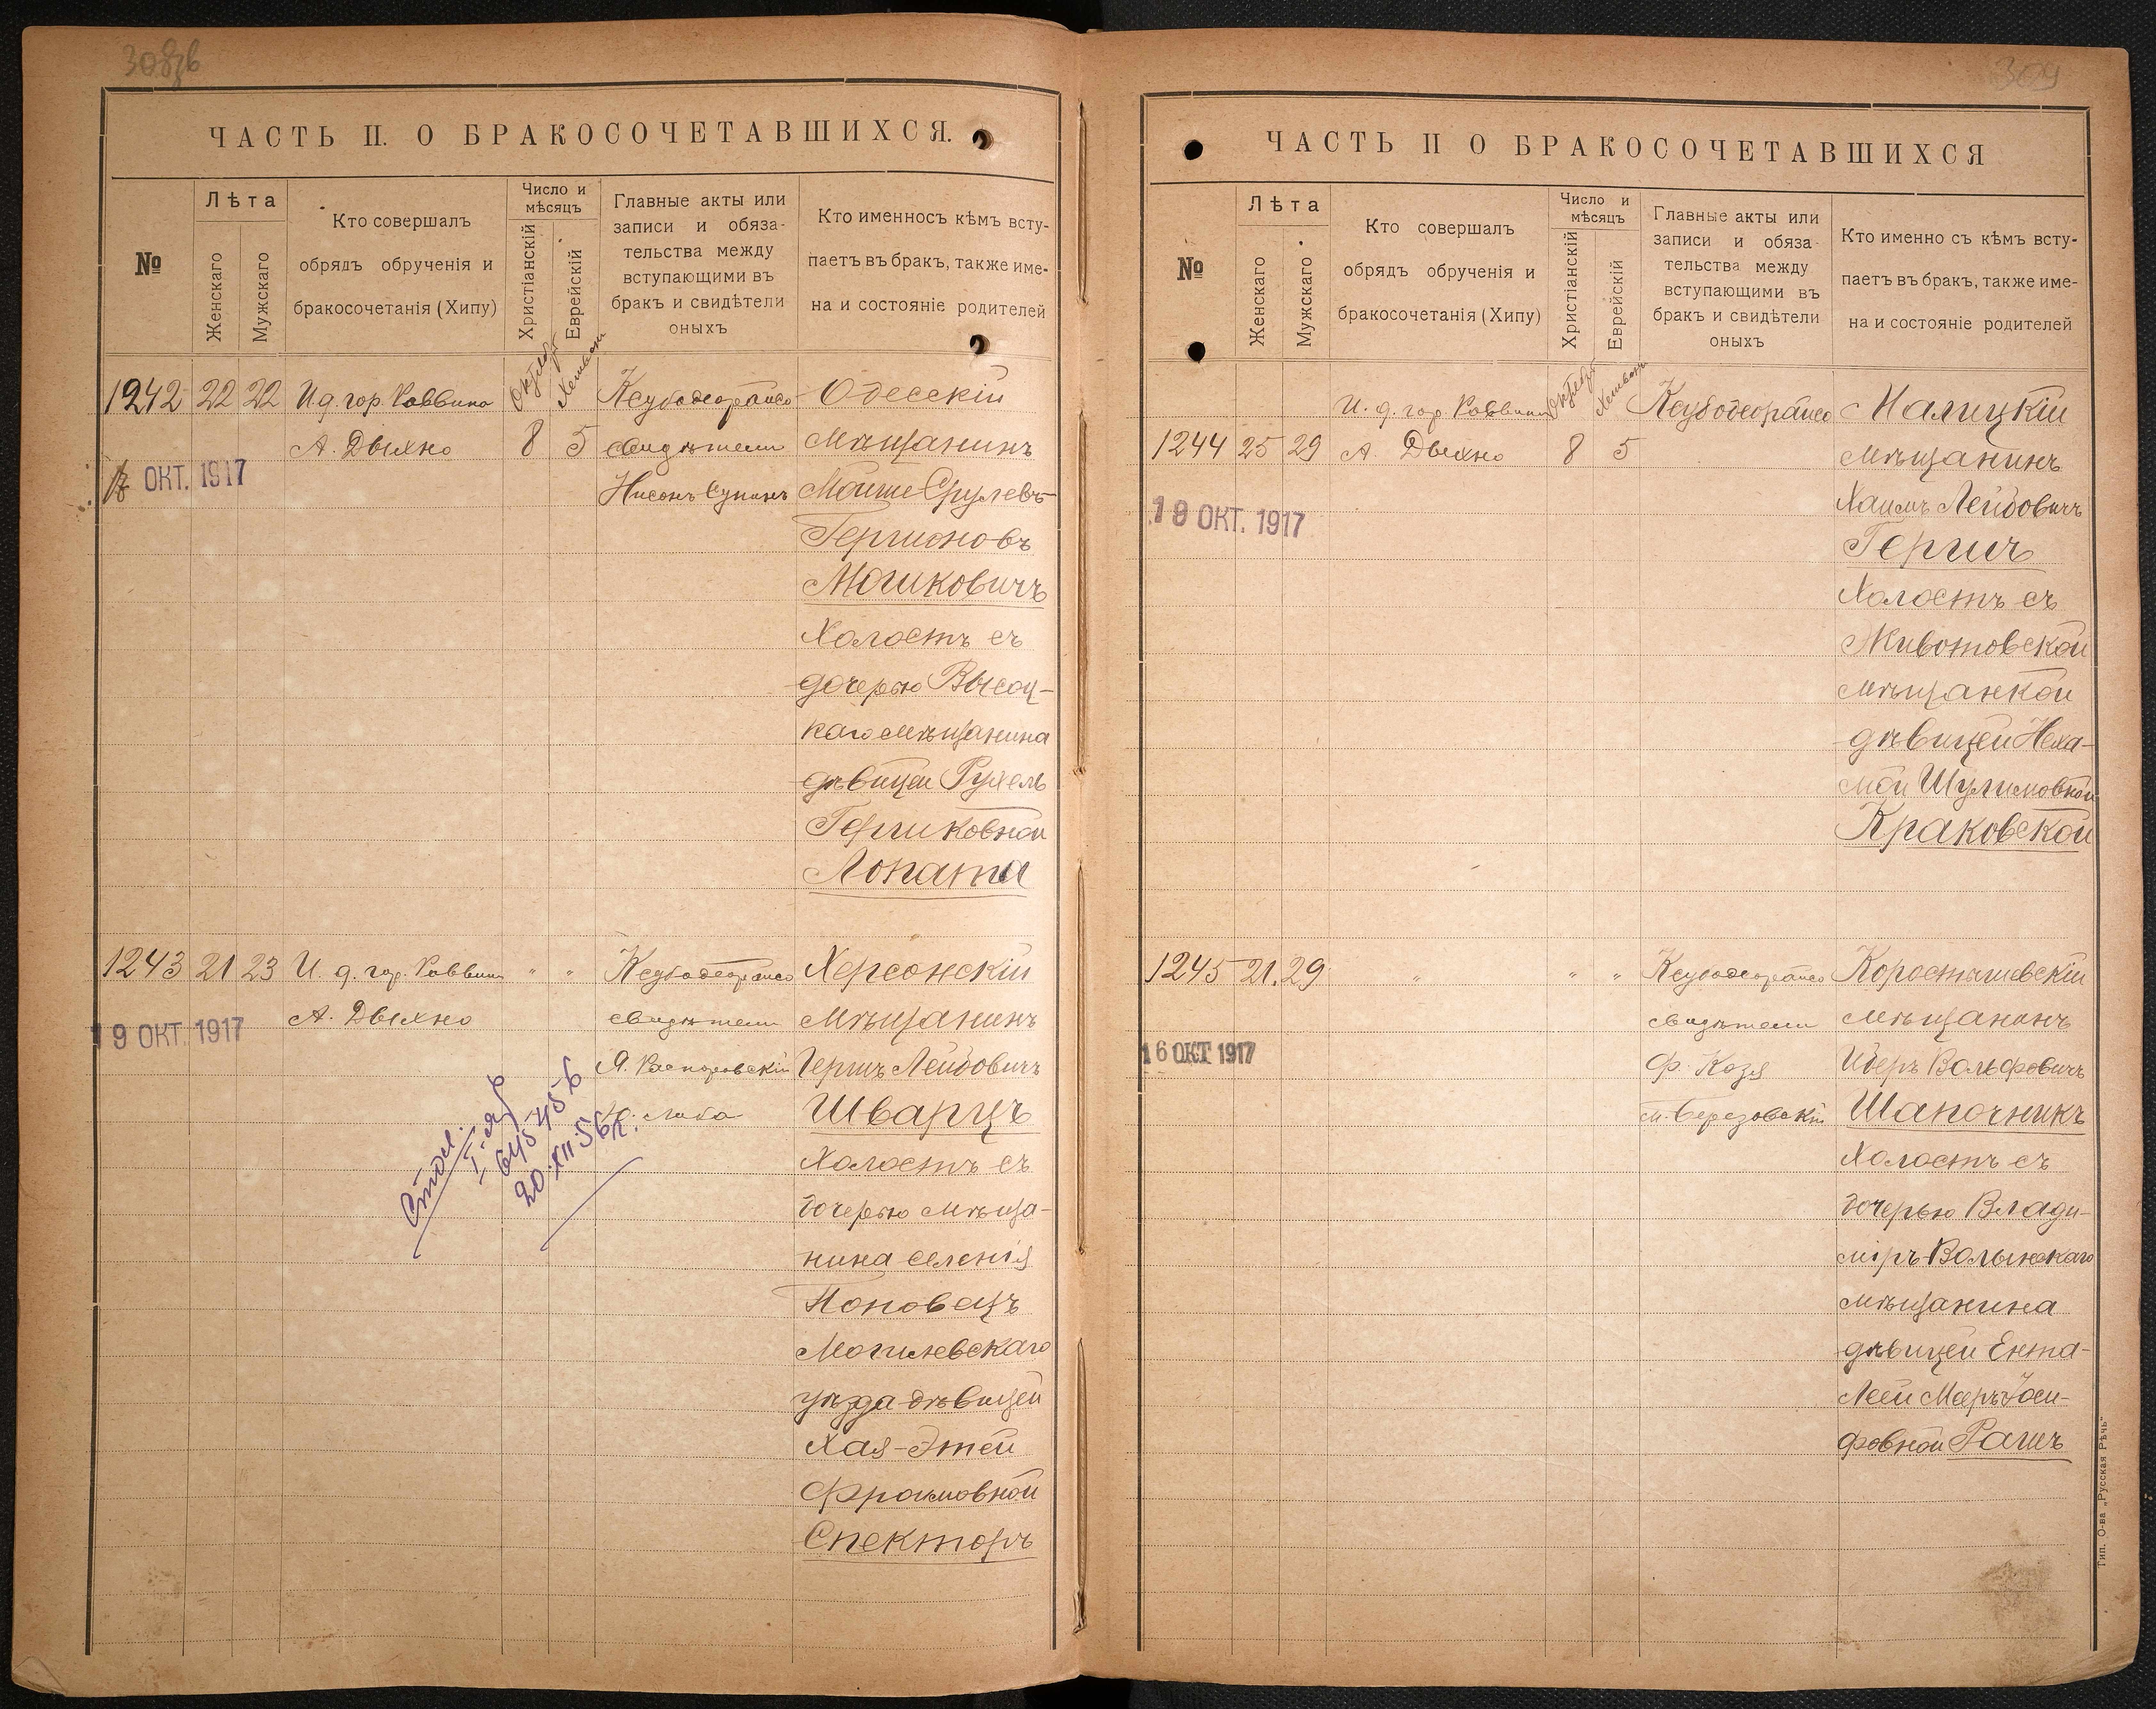 309
ЧАСТЬ II. О БРАКОСОЧЕТАВШИХСЯ.
№
Лѣта
Женскаго
Мужскаго
Кто совершалъ
обрядъ обрученія и
бракосочетанія (Хипу)
Число и
мѣсяцъ
Христіанскій
Еврейскій
Главные акты или
записи и обяза-
тельства между
вступающими въ
бракъ и свидѣтели
оныхъ
Кто именносъ кѣмъ всту-
паетъ въ бракъ, также име-
на и состояніе родителей
1242 22 22 И д. гор. Раввина
А. Дыхно
Октябрь
8 5
ОКТ. 1917
свидѣтели
Одесскій
Мѣщанинъ
Мойше Срулевъ-
Гершоновъ
Мошковичъ
Холостъ съ
дочерью Высоц-
каго мѣщанина
дѣвицей Рухель
Гершковной
Лопата
1243 21 23 И. д. гор. Раввина " "
А. Дыхно
19 ОКТ. 1917
свидѣтели
Херсонскій
Мѣщанинъ
Гершъ Лейбовичъ
Шварцъ
Холостъ съ
дочерью мѣща-
нина селенія
Могилевскаго
уѣзда дѣвицей
Хая-Этей
Фроимовной
Спекторъ
20.XII.56
ЧАСТЬ II О БРАКОСОЧЕТАВШИХСЯ
№
Лѣта
Женскаго
Мужскаго
Кто совершалъ
обрядъ обрученія и
бракосочетанія (Хипу)
Число и
мѣсяцъ
Христіанскій
Еврейскій
Главные акты или
записи и обяза-
тельства между
вступающими въ
бракъ и свидѣтели
оныхъ
Кто именно съ кѣмъ всту-
паетъ въ бракъ, также име-
на и состояніе родителей
И. д. гор. Раввина
1244 25 29 А. Дыхно 8 5
19 ОКТ. 1917
мѣщанинъ
Хаимъ Лейбовичъ
Гершъ
Холостъ съ
Животовской
мѣщанкой
дѣвицей Неха-
мой Шулимовной
Краковской
1245 21. 29 " " "
16 ОКТ 1917
свидѣтели
Ф. Козя
М. Березовскій
Коростышевскій
мѣщанинъ
Иберъ Вольфовичъ
Шапочникъ
Холостъ съ
дочерью Влади-
міръ Волынскаго
мѣщанина
дѣвицей Ента-
Леей Меръ Іоси-
фовной Рашъ
Тип. О-ва „Русская Рѣчь“